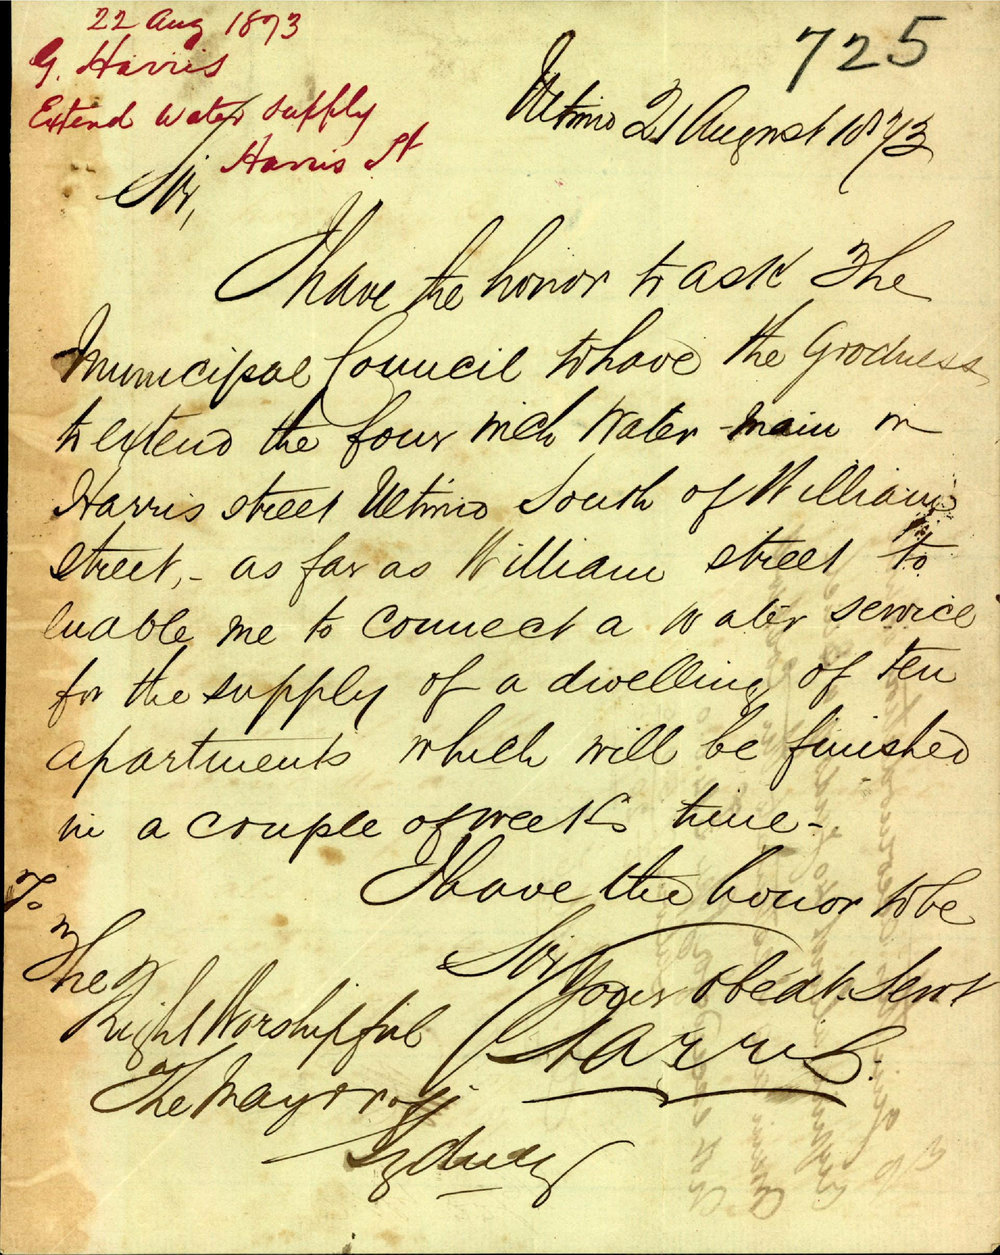 22 Aug 1873
G. Harris
Extend water supply
Harris St
725
Ultimo 21 August 1873
Sir,
I have the honor to ask The
Municipal Council to have the Goodness
to extend the four inch Water-main in
Harris street Ultimo South of William
street,- as far as William street to
enable me to connect a water service
for the supply of a dwelling of ten
apartments which will be finished
in a couple of weeks time-
I have the honor to be
Sir
Your obedt Servt
Harris.
To
The
Right Worshipful
The Mayor of
Sydney